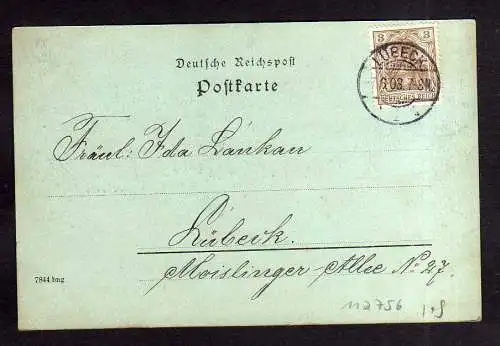 Deutsche Reichspost
Postkarte
3 3
LÜBECK
DEUTSCHES REICH
Fräul: Ida Lankau
Lübeck.
Moislinger Allee No 27.
7844 bmg
112756